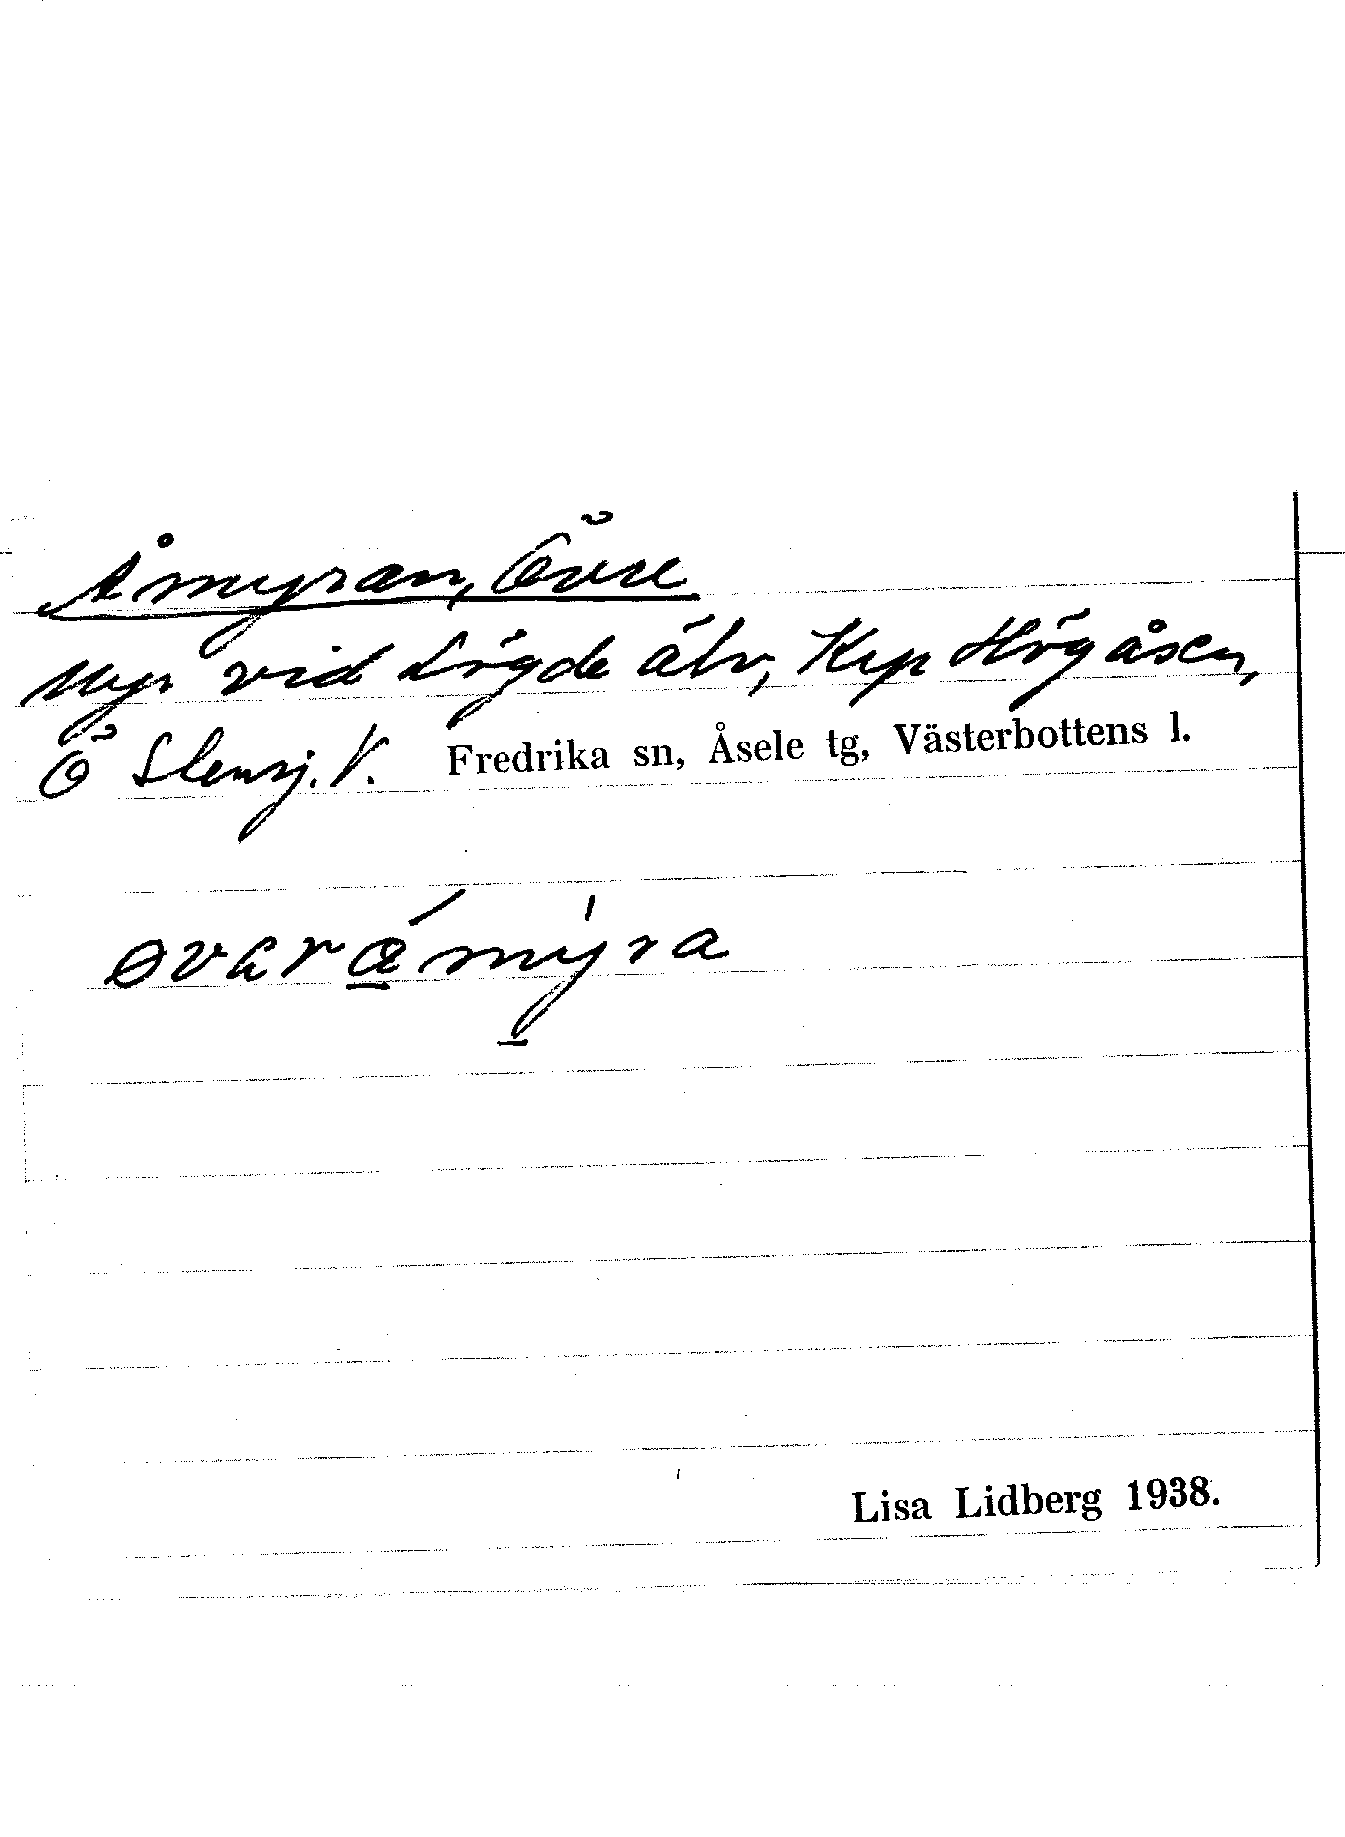 Åmyran, Övre
Myr vid Lögde älv, Krp Högåsen,
Ö Stensj. V. Fredrika sn, Åsele tg, Västerbottens l.
øvarámýra
Lisa Lidberg 1938.